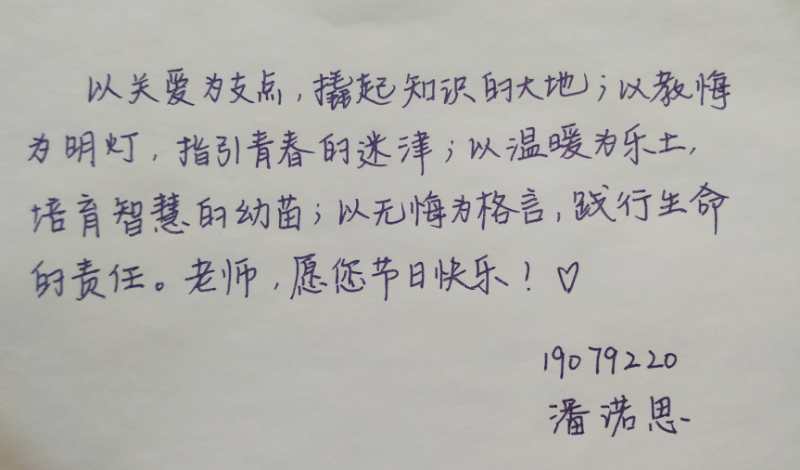 以关爱为支点，撬起知识的大地；以教悔
为明灯，指引青春的迷津；以温暖为乐土，
培育智慧的幼苗；以无悔为格言，践行生命
的责任。老师，愿您节日快乐！♡
19079220
潘诺思